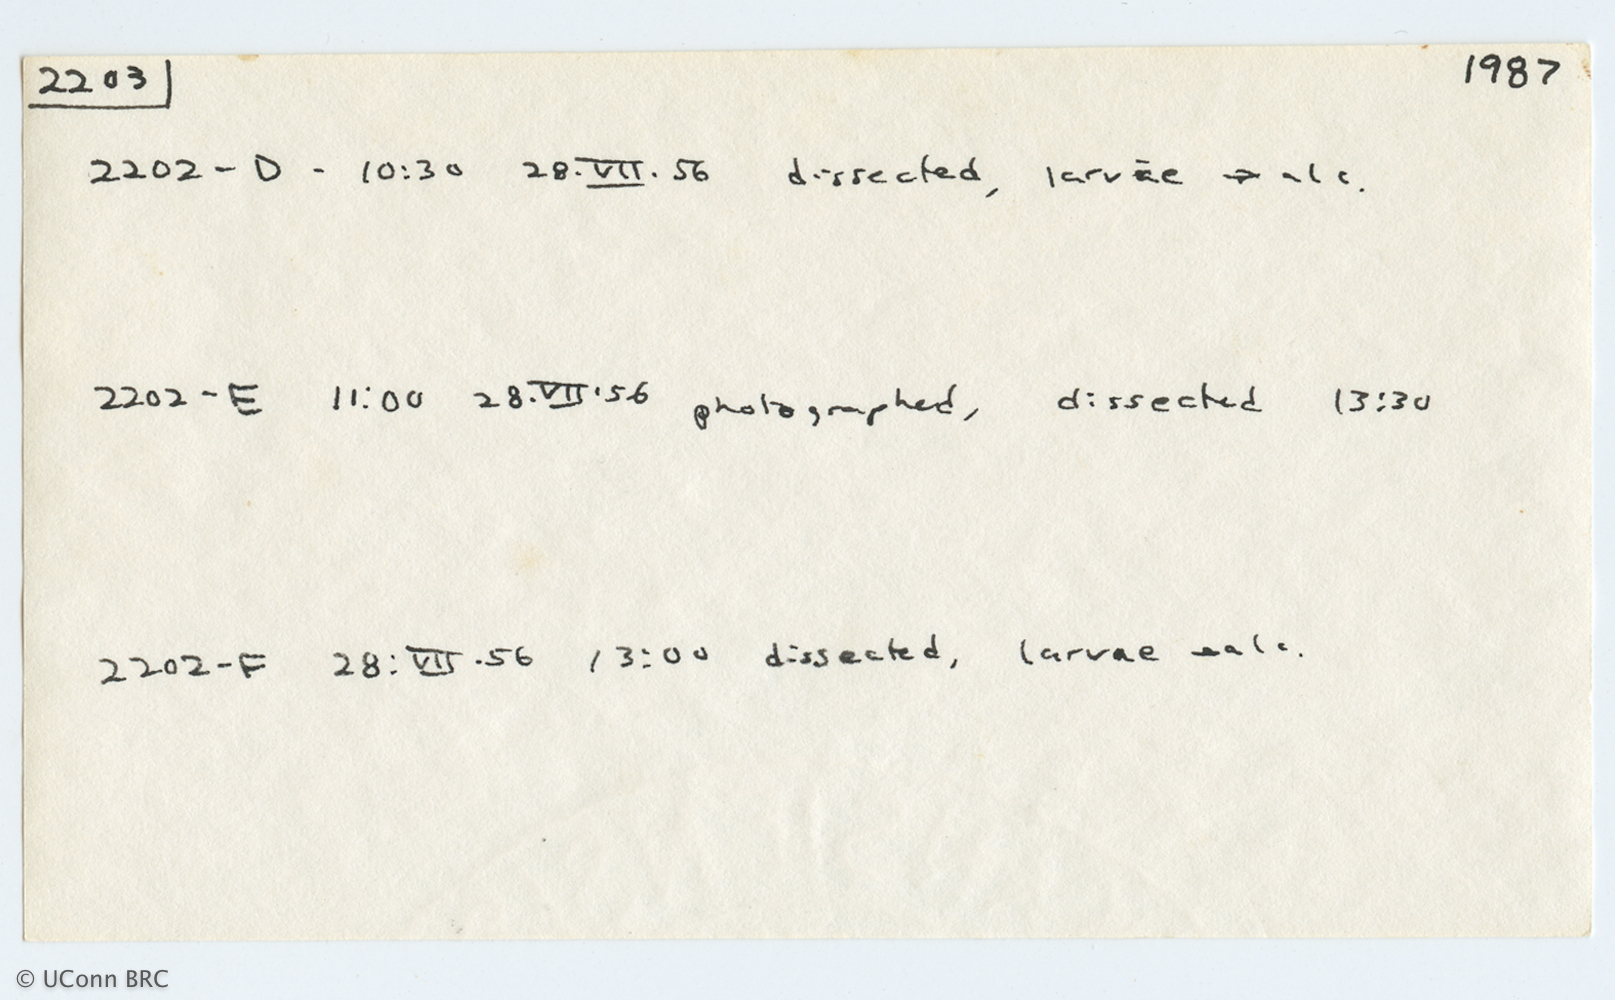 2203 1987
2202-D - 10:30 28.VII.56 dissected, larvae → alc.
2202-E 11:00 28.VII.56 photographed, dissected 13:30
2202-F 28:VII.56 13:00 dissected, larvae → alc.
© UConn BRC